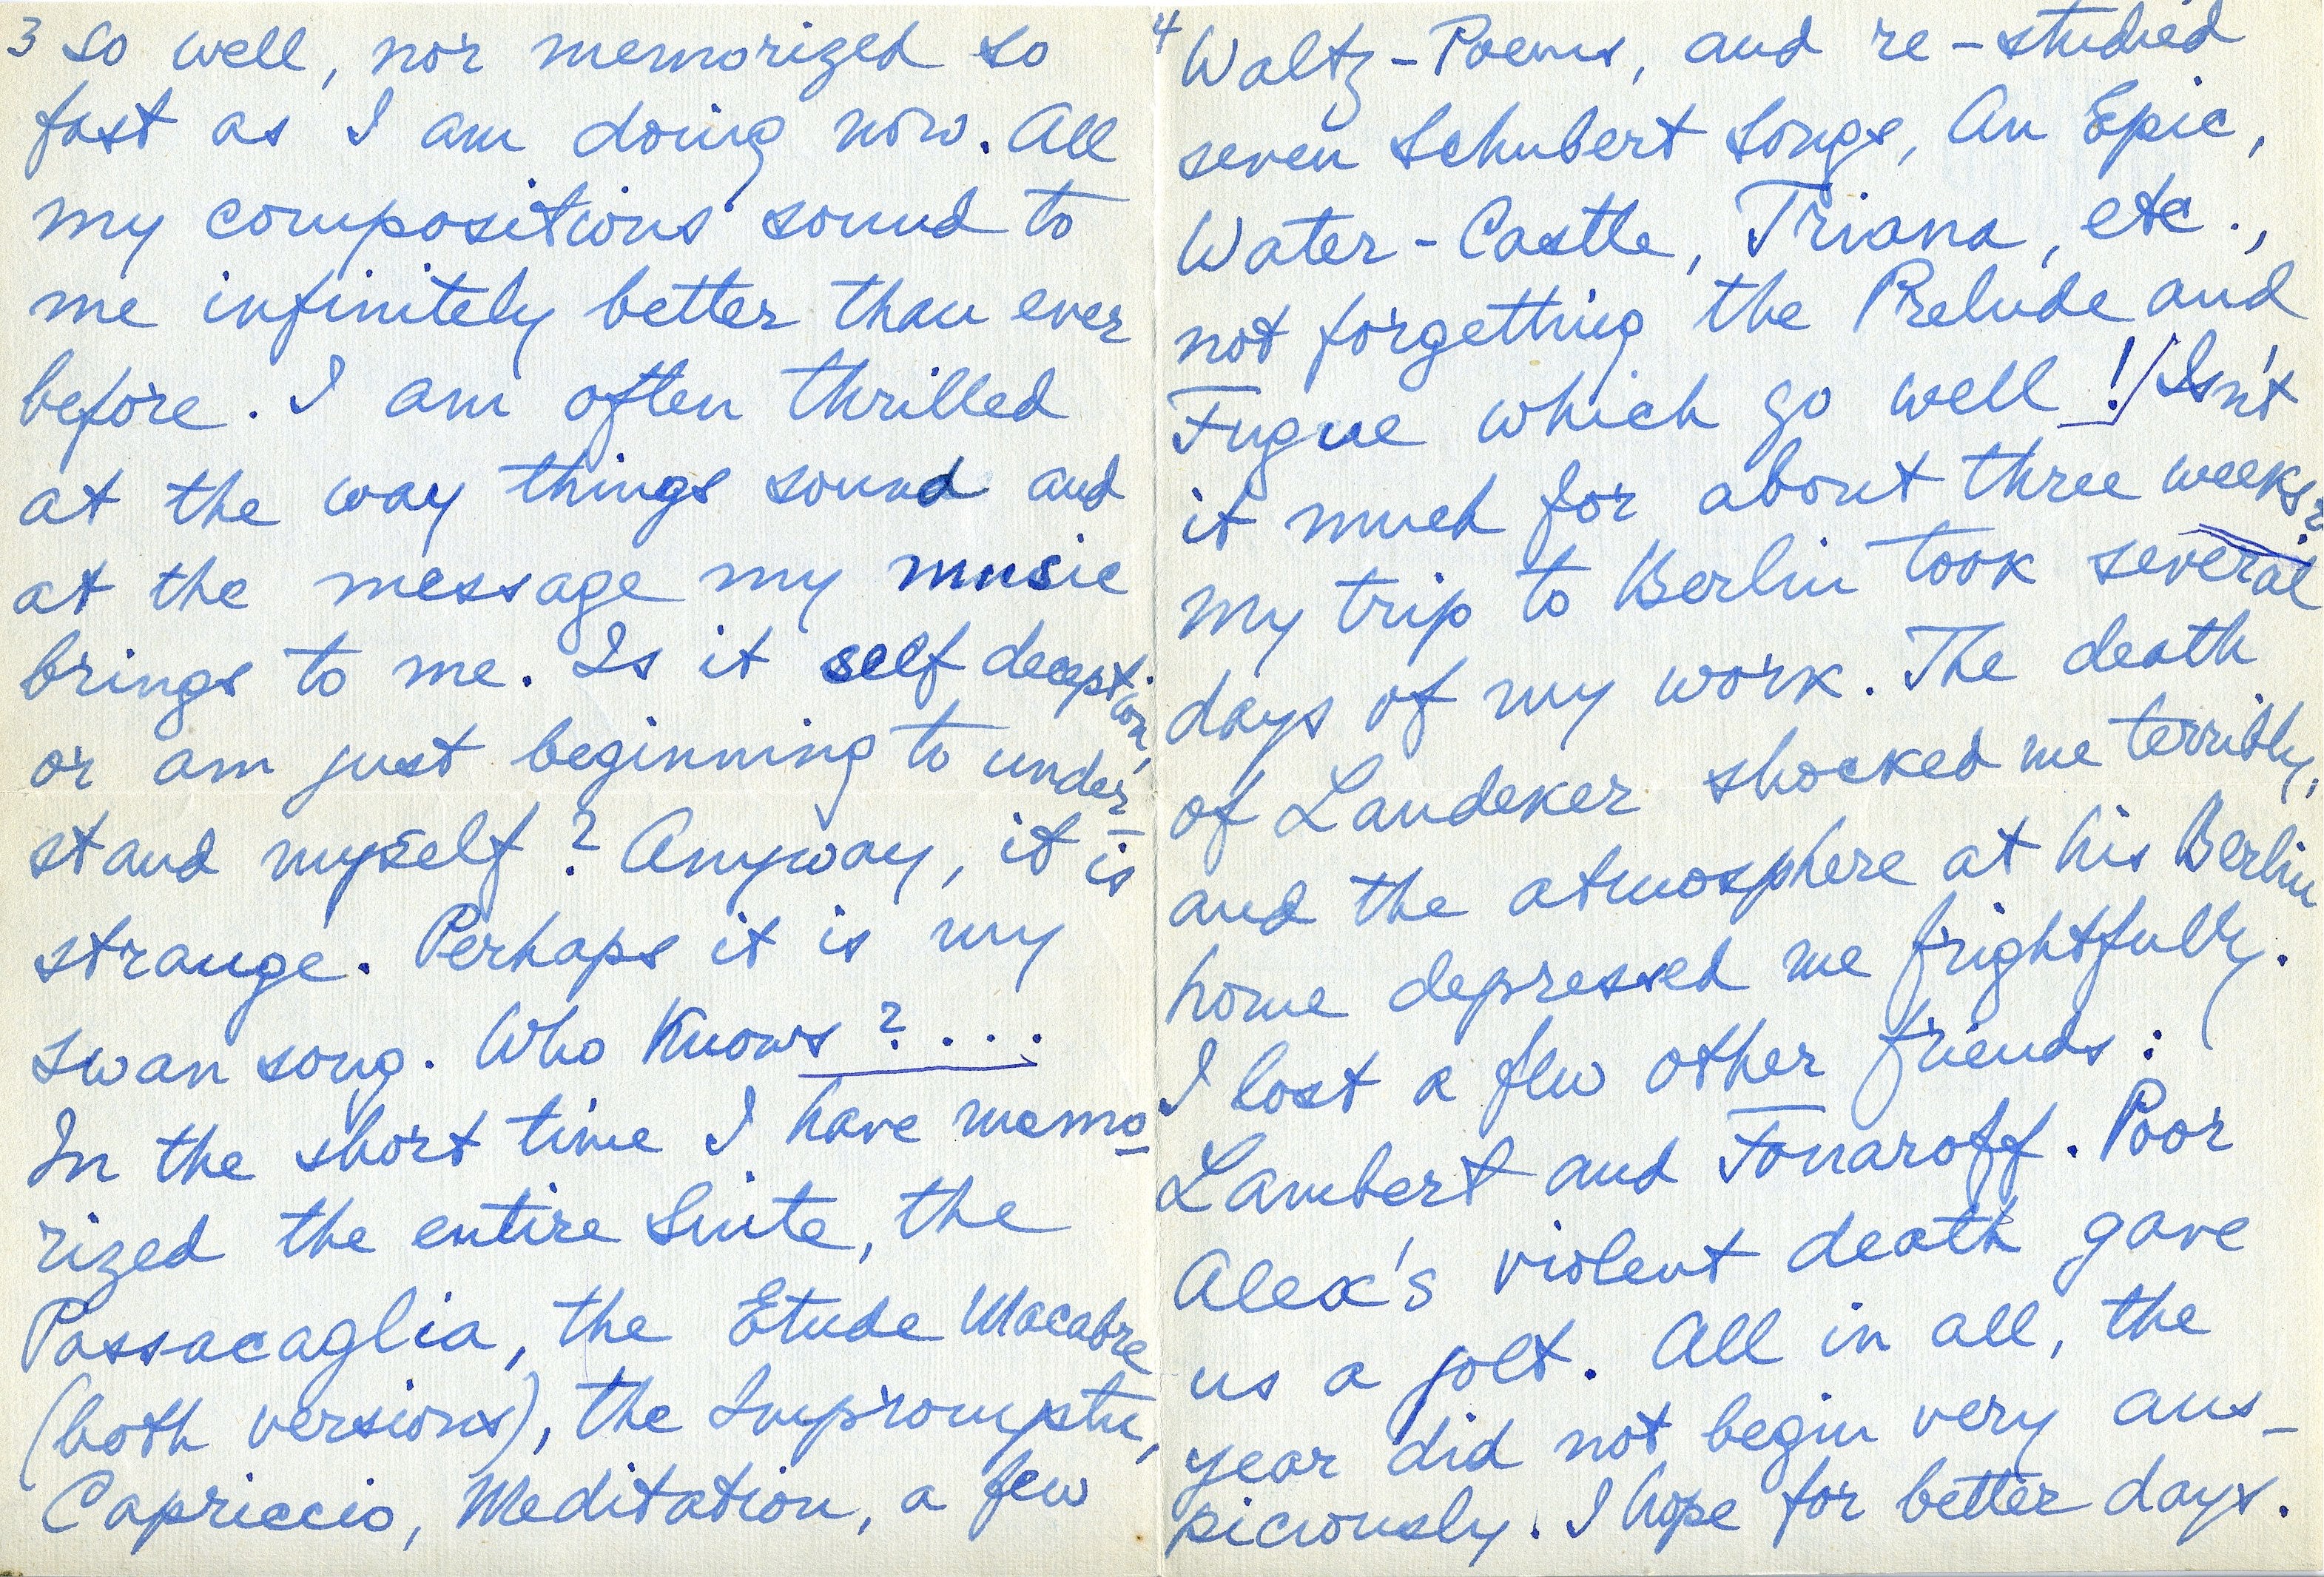 3 So well, nor memorized so
fast as I am doing now. All
my compositions sound to
me infinitely better than ever
before. I am often thrilled
at the way things sound and
at the message my music
brings to me. Is it self deception,
or am just beginning to under-
stand myself? Anyway, it is
strange. Perhaps it is my
swan song. Who Knows?....
In the short time I have memo-
rized the entire Suite, the
Passacaglia, the Etude Macabre
(both versions), the Impromptu,
Capriccio, Meditation, a few
4 Waltz-Poems, and re-studied
seven Schubert Songs, An Epic,
Water-Castle, Triana, etc.,
not forgetting the Prelude and
Fugue which go well! Isn't
it much for about three weeks?
my trip to Berlin took several
days of my work. The death
of Landeker shocked me terribly,
and the atmosphere at his Berlin
home depressed me frightfully.
I lost a few other friends:
Lambert and Fonaroff. Poor
Alex's violent death gave
us a jolt. All in all, the
year did not begin very aus-
piciously. I hope for better days.